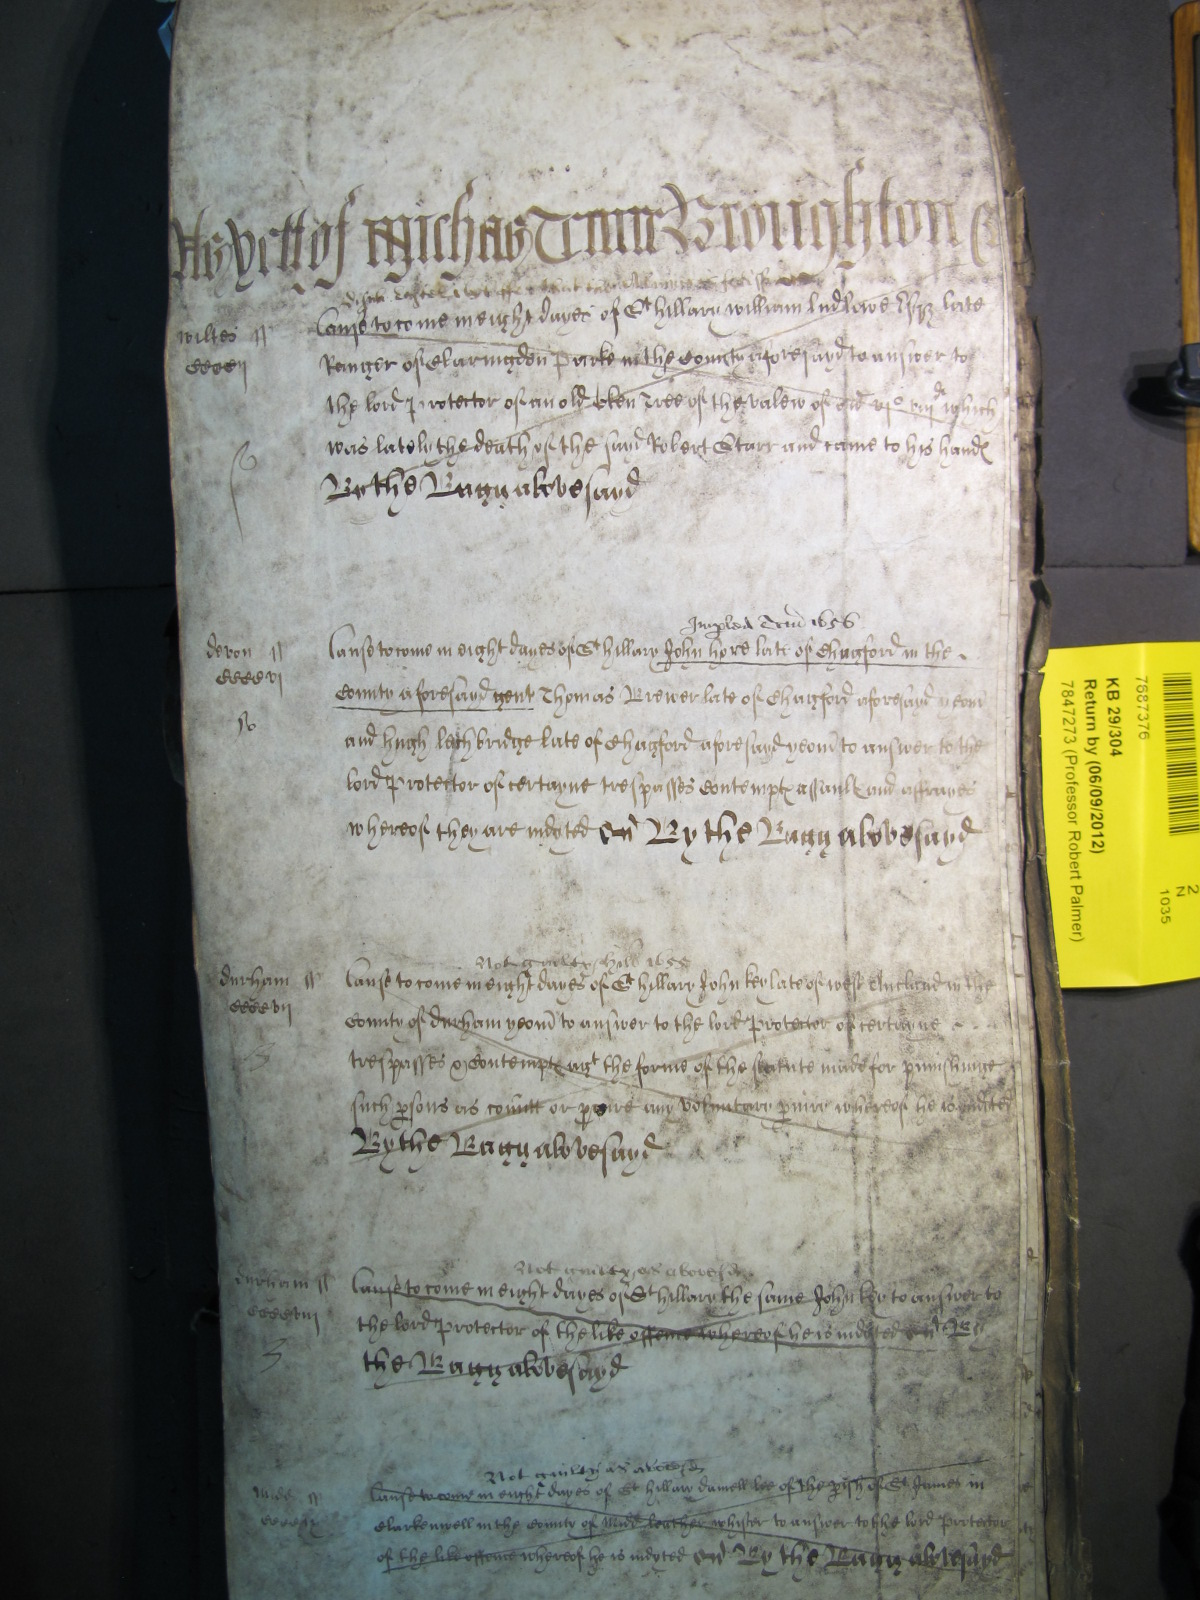 As yett of Michas Terme Broughton
wiltes
Cause to come in eight dayes of St hillary william Ludlowe late
Ranger of Claringdon Parke in the County aforesayd to answer to
the lord Protector of an old oken Tree of the valew of which
was lately the death of the sayd Robert Starr and came to his hands
By the Bagg abovesayd
Impled 1656
devon
Cause to come in eight dayes of St hillary John hore late of Chagford in the
County aforesayd gent Thomas Brewer late of Chagford aforesayd yeom
and hugh lethbridge late of Chagford aforesayd yeom to answer to the
lord Protector of certayne trespasses Contempts assaults and affrayes
whereof they are indyted By the Bagg abovesayd
Not guilty hill 1655
durham
Cause to come in eight dayes of St hillary John key late of west in the
County of durham yeom to answer to the lord Protector of certayne
trespasses & Contempts agt the forme of the statute made for punishinge
such psons as comitt or any voluntary whereof he is indyted
By the Bagg abovesayd
Not guilty as above
durham
Cause to come in eight dayes of St hillary the same John key to answer to
the lord Protector of the like offence whereof he is indyted By
the Bagg abovesayd
Not guilty as above
Midd
Cause to come in eight dayes of St hillary daniell lee of the pish of St James in
Clarkenwell in the County of Midd to answer to the lord Protector
of the like offence whereof he is indyted By the Bagg abovesayd
7687376
KB 29/304
Return by (06/09/2012)
7847273 (Professor Robert Palmer)
2
N
1035